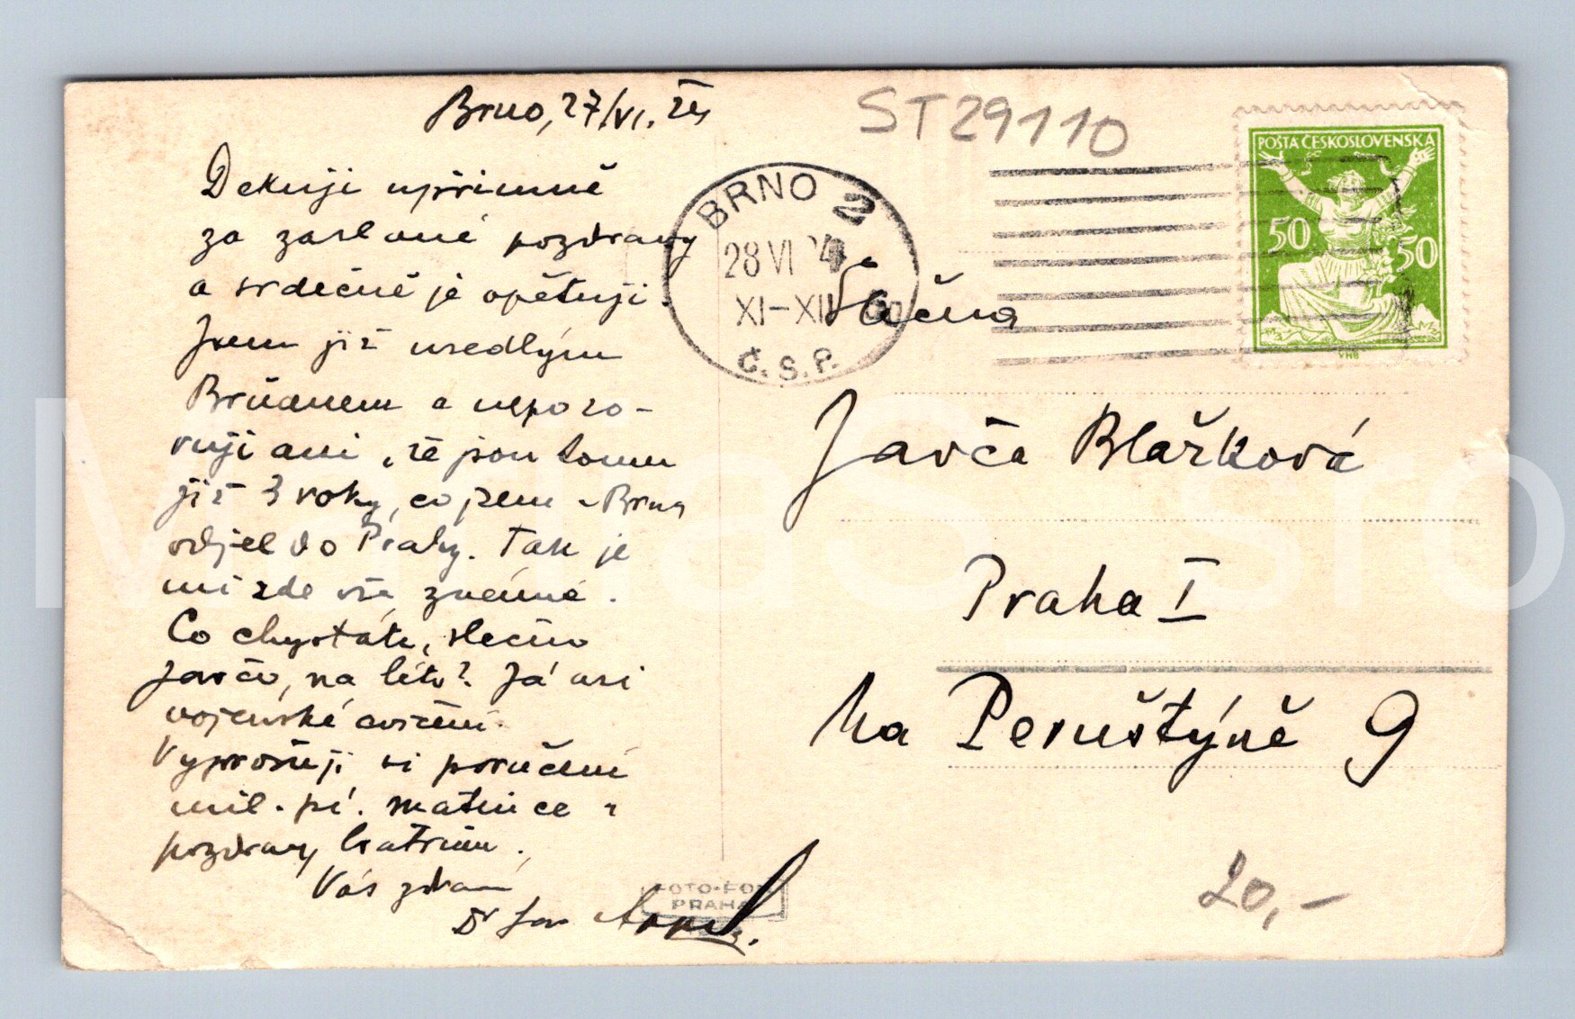 Brno, 27/VI. 24
ST29110
Dekuji upřimně
za zaslané pozdravy
a srdečně je opětuji.
Jsem již usedlým
Brňanem a nepozo-
ruji ani, že jsou tomu
již 3 roky, co jsem z Brna
odjel do Prahy. Tak je
mi zde vše známé.
Co chystáte, slečno
Jarčo, na léto? Já asi
vojenské cvičení.
Vyprošuji si poručení
mil. pí. matince a
pozdravy bratrům.
Váš zdraví
Dr Jar
FOTO-FON
PRAHA
BRNO 2
28 VI 24
XI-XII
Č.S.P.
POŠTA ČESKOSLOVENSKÁ
50 50
VHB
Slečna
Jarča Blažková
Praha I
Na Perštýně 9
20,-